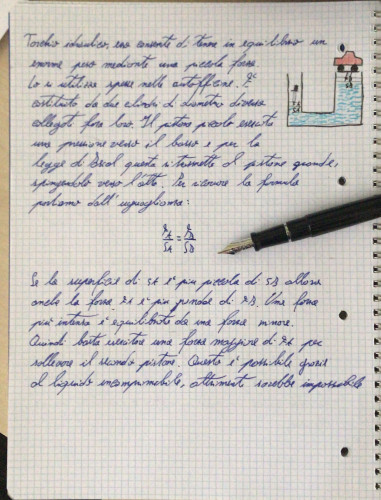 Torchio idraulico, esso consente di tenere in equilibrio un
enorme peso mediante una piccola forza.
Lo si utilizza spesso nelle autofficine. È
costituito da due cilindri di diametro diverso
collegati fra loro. Il pistone piccolo esercita
una pressione verso il basso e per la
legge di Pascal questa si trasmette al pistone grande,
spingendolo verso l'alto. Per ricavare la formula
partiamo dall'uguaglianza:
FA/SA = FB/SB
Se la superficie di SA è più piccola di SB allora
anche la forza FA è più piccola di FB. Una forza
più intensa è equilibrata da una forza minore.
Quindi basta esercitare una forza maggiore di FA per
sollevare il secondo pistone. Questo è possibile grazie
al liquido incomprimibile, altrimenti sarebbe impossibile